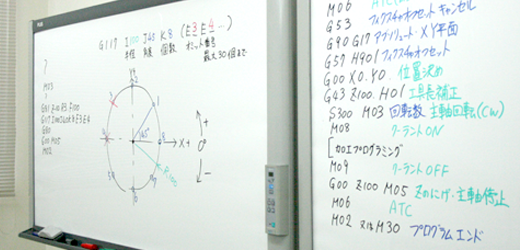 G117 I100 J45 K8 (E3 E4 …)
半径 角度 個数 オミット番号
最大30個まで
M03
G80
G00 M05
M02
Y+
2
3
1
45°
X+
8
5
7
6
R100
+
0°
−
M06 ATC
G53 フィクスチャオフセットキャンセル
G90 G17 アブソリュート・XY平面
G57 H901 フィクスチャオフセット
G00 X0. Y0. 位置決め
G43 Z100. H01 工具長補正
S300 M03 回転数 主軸回転(CW)
M08 クーラントON
[加工プログラミング
M09 クーラントOFF
G00 Z100 M05 Zのにげ・主軸停止
M06 ATC
M02 又は M30 プログラムエンド